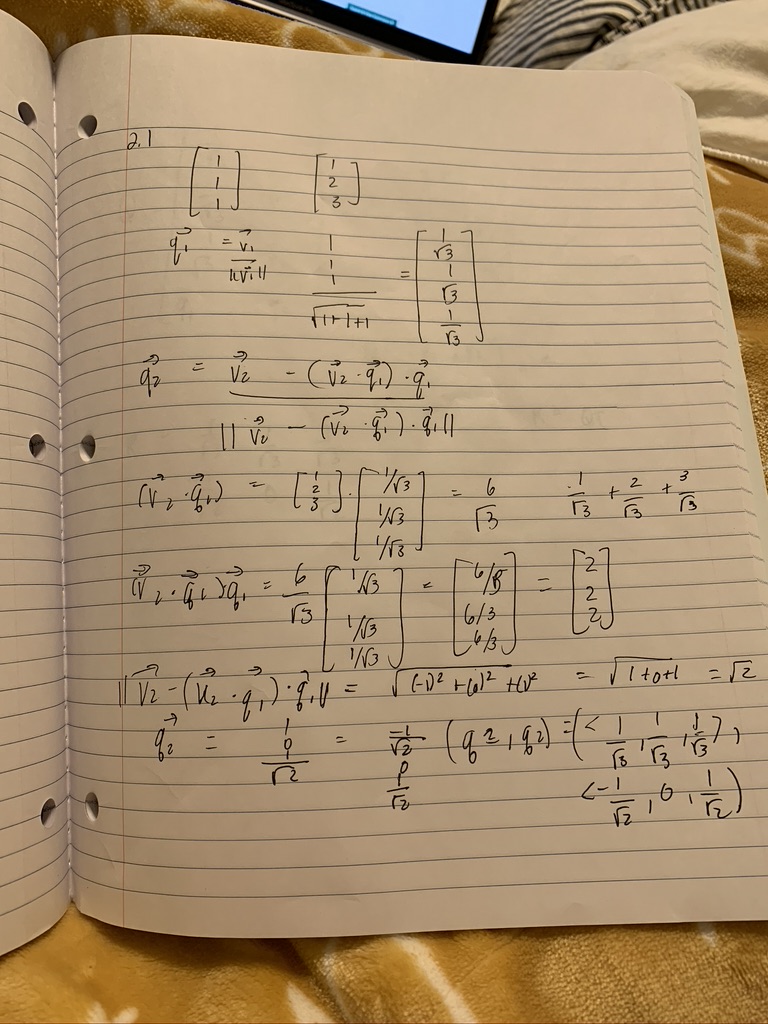 2.1
[1 1 1] [1 2 3]
q⃗₁ = v⃗₁ / ||v⃗₁|| 1 1 1 / √1+1+1 = [1/√3 1/√3 1/√3]
q⃗₂ = v⃗₂ - (v⃗₂ · q⃗₁) · q⃗₁
|| v⃗₂ - (v⃗₂ · q⃗₁) · q⃗₁ ||
(v⃗₂ · q⃗₁) = [1 2 3] · [1/√3 1/√3 1/√3] = 6/√3 1/√3 + 2/√3 + 3/√3
(v⃗₂ · q⃗₁) q⃗₁ = 6/√3 [1/√3 1/√3 1/√3] = [6/3 6/3 6/3] = [2 2 2]
|| v⃗₂ - (v⃗₂ · q⃗₁) · q⃗₁ || = √(-1)² + (0)² + (1)² = √1+0+1 = √2
q⃗₂ = 1 0 / √2 = -1/√2 0 1/√2 (q⃗, q⃗₂) = (< 1/√3, 1/√3, 1/√3 >,
< -1/√2, 0, 1/√2)